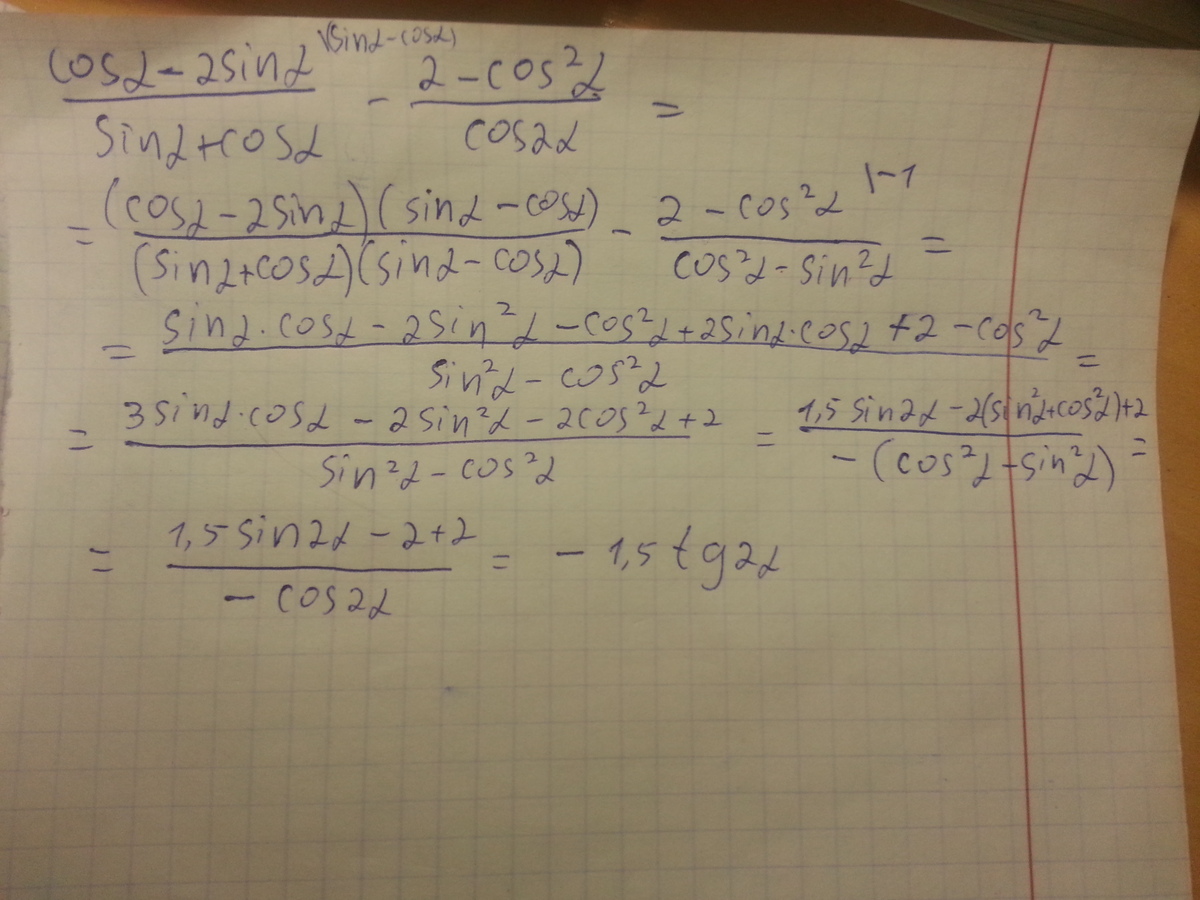 (cosα - 2sinα)/(sinα+cosα) \(sinα-cosα) - (2 - cos²α)/(cos2α) =
= ((cosα - 2sinα)(sinα - cosα))/((sinα+cosα)(sinα - cosα)) - (2 - cos²α)/(cos²α - sin²α) |-1 =
= (sinα·cosα - 2sin²α - cos²α + 2sinα·cosα + 2 - cos²α)/(sin²α - cos²α) =
= (3sinα·cosα - 2sin²α - 2cos²α + 2)/(sin²α - cos²α) = (1,5sin2α - 2(sin²α+cos²α)+2)/(-(cos²α - sin²α)) =
= (1,5sin2α - 2+2)/(- cos2α) = - 1,5tg2α